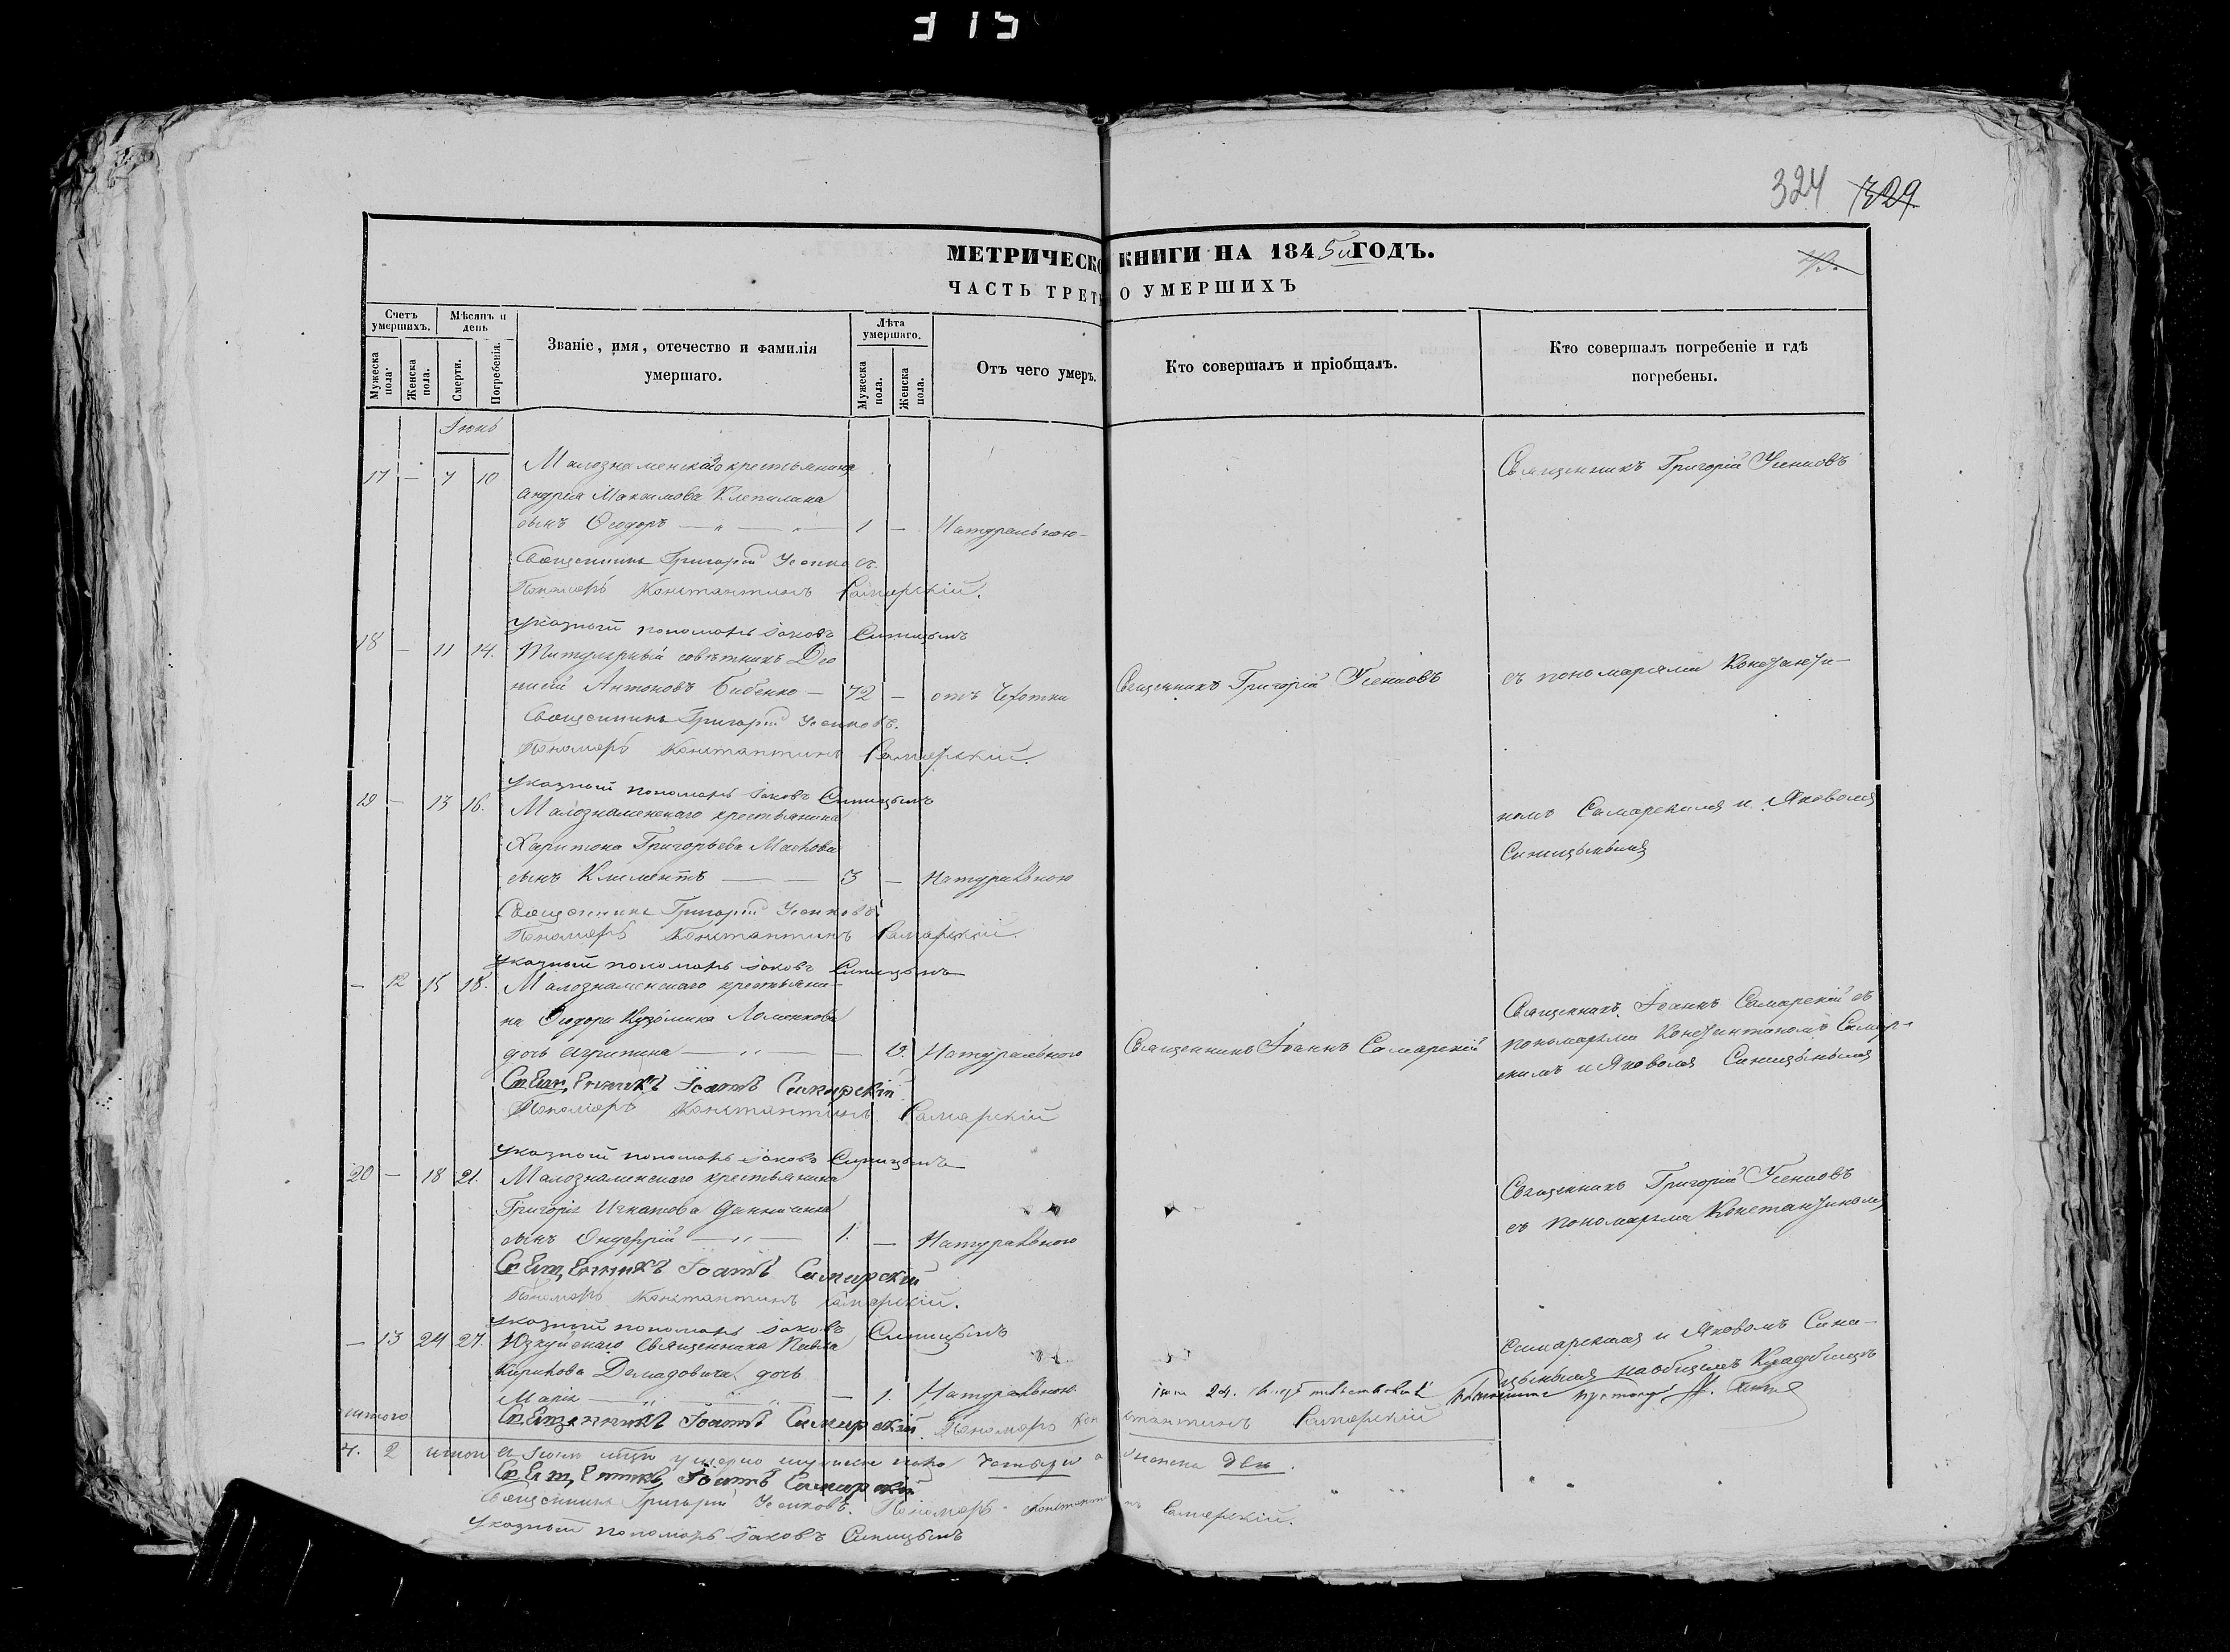 315
324 329
МЕТРИЧЕСКО КНИГИ НА 1845й ГОДЪ.
ЧАСТЬ ТРЕТЬ О УМЕРШИХЪ
Счетъ умершихъ.
Мужеска пола.
Женска пола.
Мѣсяцъ и день
Смерти.
Погребенія.
Званіе, имя, отечество и фамилія
умершаго.
Лѣта умершаго.
Мужеска пола.
Женска пола.
Отъ чего умеръ.
Кто совершалъ и пріобщалъ.
Кто совершалъ погребеніе и гдѣ
погребены.
Іюнь
17 — 7 10 Малознаменскаго крестьянина
Андрея Максимова Клепилина
сынъ Ѳеодоръ — „ — „ — 1 — Натуральною
Священникъ Григорій Усенковъ
Священникъ Григорій Усенковъ.
Пономарь Константинъ Самарскій.
указный пономарь Іаковъ Синицынъ
18 — 11 14. Титулярный совѣтникъ Дио
нисій Антоновъ Бибенко — 72 — отъ Чехотки Священникъ Григорій Усенковъ
съ пономарями Константи-
Священникъ Григорій Усенковъ.
Пономарь Константинъ Самарскій.
указный пономарь Іаковъ Синицынъ
19 — 13 16. Малознаменскаго крестьянина
Харитона Григорьева
сынъ Климентъ — — 3 — Натуральною
номъ Самарскимъ и Яковомъ
Синицынымъ
Священникъ Григорій Усенковъ.
Пономарь Константинъ Самарскій.
указный пономарь Іаковъ Синицынъ
— 12 15 18. Малознаменскаго крестьяни-
на Ѳеодора Кузьмина
дочь Агрипина — „ — — Натуральною Священникъ Іоаннъ Самарскій
Священникъ Іоаннъ Самарскій съ
пономарями Константиномъ Самар-
скимъ и Яковомъ Синицынымъ
Священникъ Іоаннъ Самарскій.
Пономарь Константинъ Самарскій
указный пономарь Іаковъ Синицынъ
20 — 18 21. Малознаменскаго крестьянина
Григорія Игнатова
сынъ — „ — 1. — Натуральною
Священникъ Григорій Усенковъ
съ пономарями Константиномъ
Священникъ Іоаннъ Самарскій
Пономарь Константинъ Самарскій.
указный пономарь Іаковъ Синицынъ
— 13 24 27. Священника Павла
Кирикова дочь
Марія — „ — 1. Натуральною
Самарскимъ и Яковомъ Сини-
цынымъ на общемъ Кладбищѣ
Священникъ Іоаннъ Самарскій. Пономарь Константинъ Самарскій
итого
4. 2 умерло мужеска пола четыри а женска две.
Священникъ Іоаннъ Самарскій
Священникъ Григорій Усенковъ. Пономарь Константинъ Самарскій.
указный пономарь Іаковъ Синицынъ